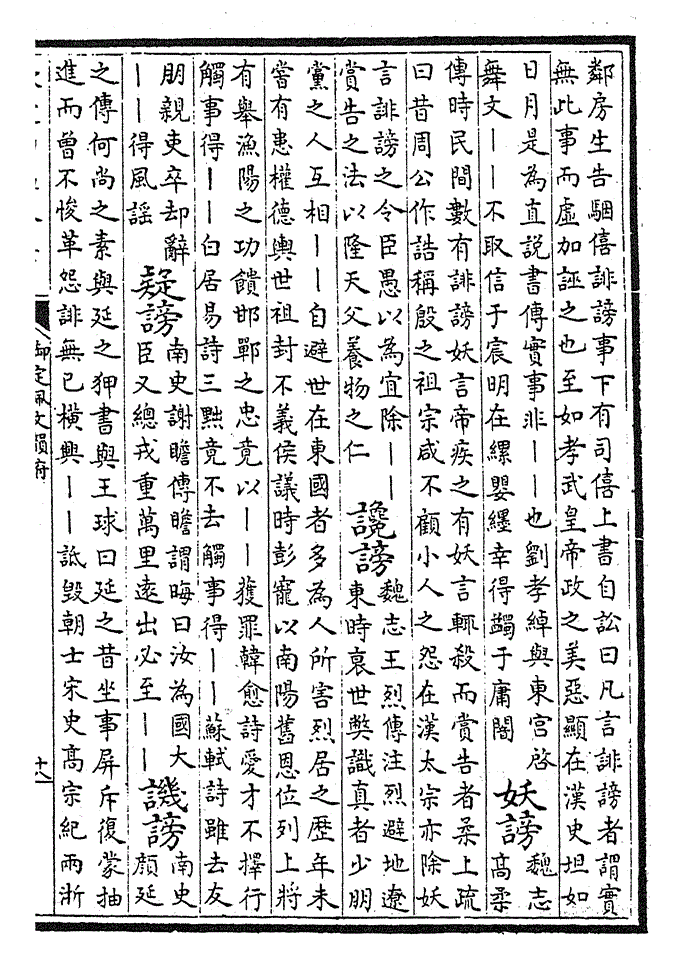 鄰房生告駰僖誹謗事下有司僖上書自訟曰凡言誹謗者謂實
無此事而虛加誣之也至如孝武皇帝政之美惡顯在漢史坦如
日月是為直説書傳實事非——也劉孝綽與東宮啓
舞文——不取信于宸明在縲嬰纆幸得蠲于庸闇
妖謗
魏志
高柔
傳時民間數有誹謗妖言帝疾之有妖言輒殺而賞告者柔上疏
曰昔周公作誥稱殷之祖宗咸不顧小人之怨在漢太宗亦除妖
言誹謗之令臣愚以為宜除——
賞告之法以隆天父養物之仁
讒謗
魏志王烈傳注烈避地遼
東時哀世弊識真者少朋
黨之人互相——自避世在東國者多為人所害烈居之歴年未
嘗有患權德輿世祖封不義侯議時彭寵以南陽舊恩位列上將
有舉漁陽之功饋邯鄲之忠竟以——獲罪韓愈詩愛才不擇行
觸事得——白居易詩三黜竟不去觸事得——蘇軾詩雖去友
朋親吏卒却辭
——得風謡
疑謗
南史謝瞻傳瞻謂晦曰汝為國大
臣又總戎重萬里遠出必至——
譏謗
南史
顔延
之傳何尚之素與延之狎書與王球曰延之昔坐事屏斥復蒙抽
進而曾不悛革怨誹無已橫興——詆毁朝士宋史髙宗紀兩浙
御定佩文韻府
十八